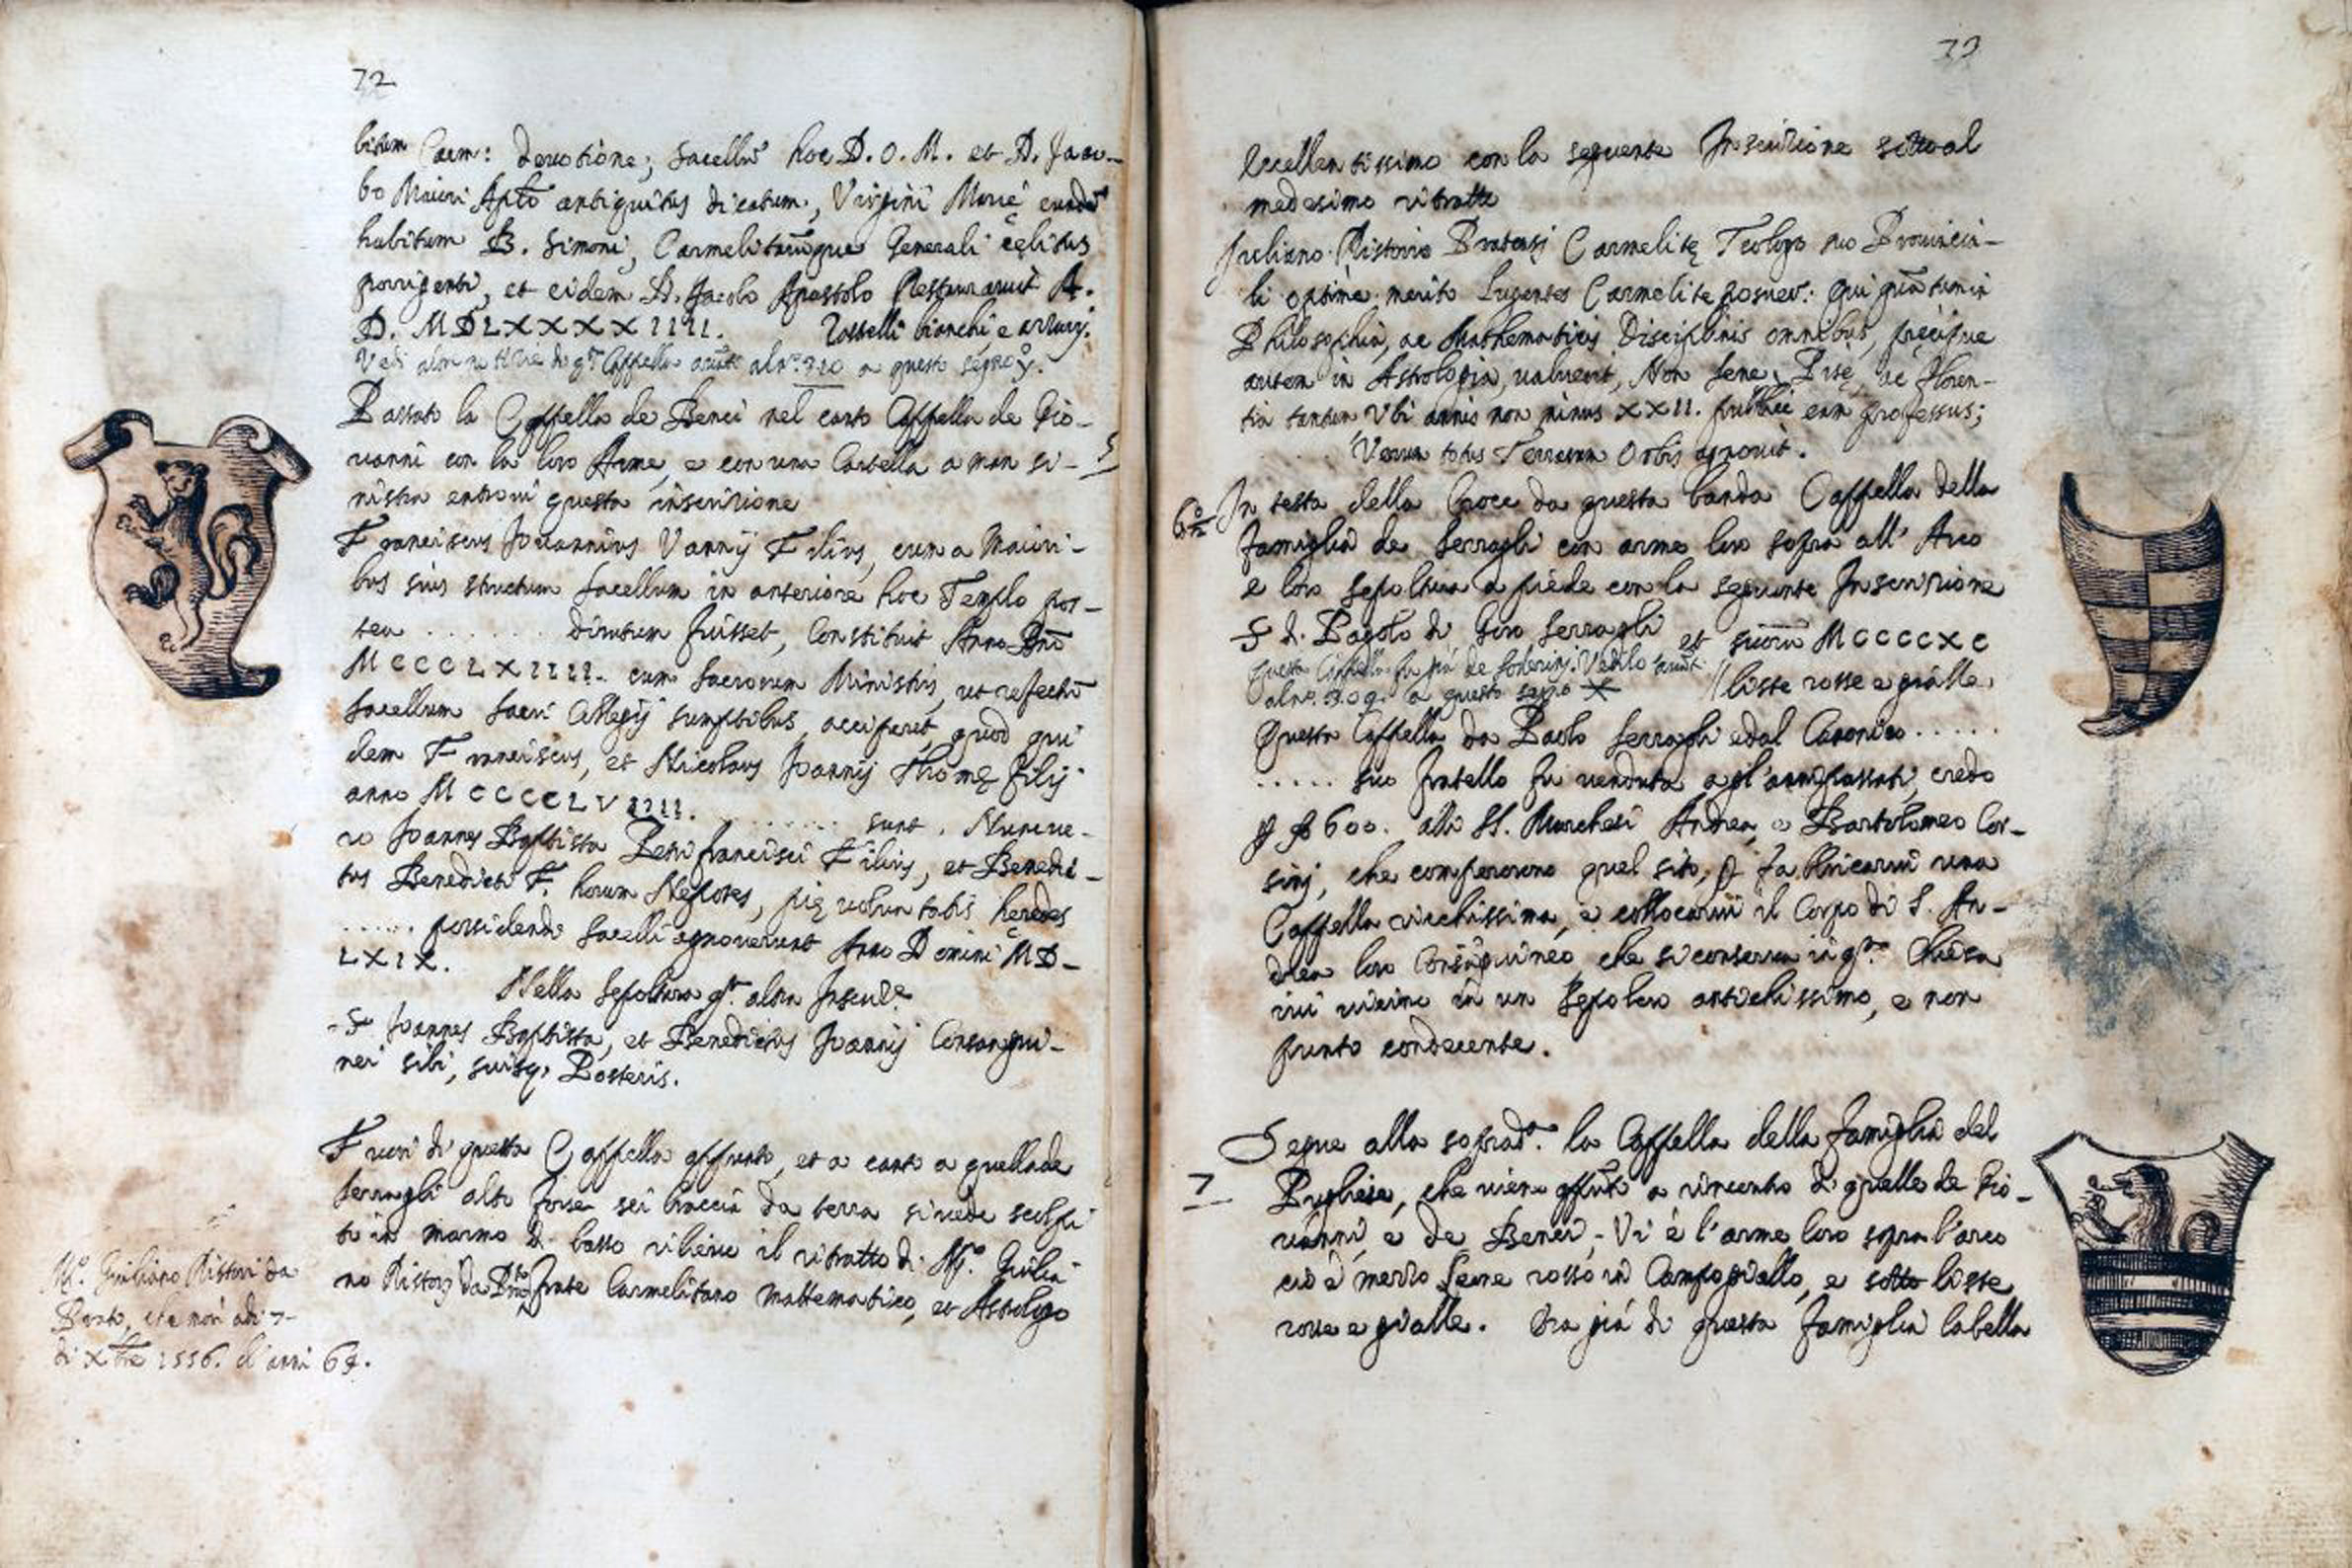 72
bitum Carm: devotione; sacellũ hoc D. O. M. et D. Jaco-
bo Maiori Apl̃o antiquitus dicatum, Virgini Marię eundẽ
habitum B. Simoni, Carmelitarũque Generali cęlitus
porrigenti, et eidem D. Jacobo Apostolo Restauravit A.
D. MDLXXXXIIII. Rastelli bianchi, e azzurrj.
Vedi altre notizie di qta Cappella al no. 310 a questo segno
Passato la Cappella de Benci nel canto Cappella de Gio-
vanni con la loro Arme, e con una Cartella a man si-
5
nistra entrovi questa inscrizione
Franciscus Joannius Vannij Filius, cum a Maiori-
bus suis structum sacellum in anteriore hoc Templo pos-
tea ....... dirutum fuisset, Constituit Anno Dñi
MCCCLXIIII. cum sacrorum Ministris, ut refectũ
sacellum sacri Collegij sumptibus acciperet, quod qui
dem Franciscus, et Nicolaus Joannij Thomę filij
anno MCCCCLVIIII. ........ sunt. Nunc ve-
ro Joannes Baptista Petri francisci Filius, et Benedic-
tus Benedicti F. horum Nepotes, pię voluntatis heredes
..... possidendi sacelli agnoverunt Ann Domini MD-
LXIX.
Nella sepoltura qta altra Inscrize
S Joannes Baptista, et Benedictus Joannij Consangui-
nei sibi, suisq, Posteris.
Fuori di questa Cappella appunto, et a canto a quella de
Serragli alto forse sei braccia da terra si vede scolpi
to in marmo di basso rilievo il ritratto di Mo. Giulia
no Ristorj da Prato frate Carmelitano Mattematico, et Astrologo
Mo. Giuliano Ristori da
Prato, che morì adì 7
di Xbre 1556. d'anni 64.
73
Eccellentissimo con la seguente Inscrizione sotto al
medesimo ritratto
Juliano Ristorio Pratensj Carmelitę Teologo suo Provincia-
li optimè merito Lugentes Carmelite posuer: qui quã tum in
Philosophia, ac Mathematicis Disciplinis omnibus, pręcipue
autem in Astrologia, valuerit, Non Sene, Pisę, ac Floren-
tia tantum Ubi annis non minus XXII. publicè eam professus;
Verum totus Terrarum Orbis agnovit.
6
In testa della Croce da questa banda Cappella della
famiglia de Serragli con arme loro sopra all' Arco
e loro sepoltura a piede con la seguente Inscrizione
S di Pagolo di Giro Serragli et suorũ MCCCCXC
questa Cappella fu già de Soderinj. Vedilo
al no. 309. a questo segno X // liste rosse e gialle.
Questa Cappella da Paolo Serragli e dal Canonico .....
..... suo fratello fu venduta agl'anni passati, credo
600. alli SS. Marchesi Andrea, e Bartolomeo Cor-
sinj, che comperorono quel sito, p fabbricarvi una
Cappella ricchissima, e collocarvi il Corpo di S. An-
drea loro Consãguineo che si conserva in qta Chiesa
ivi vicino in un sepolcro antichissimo, e non
punto condecente.
Segue alla sopradta. la Cappella della famiglia del
7
Pugliese, che viene appũto a rincontro di quelle de Gio-
vanni, e de Benci, Vi è l'arme loro sopra l'arco
cioè mezzo Leone rosso in Campo giallo, e sotto liste
rosse e gialle. Era già di questa famiglia la bella